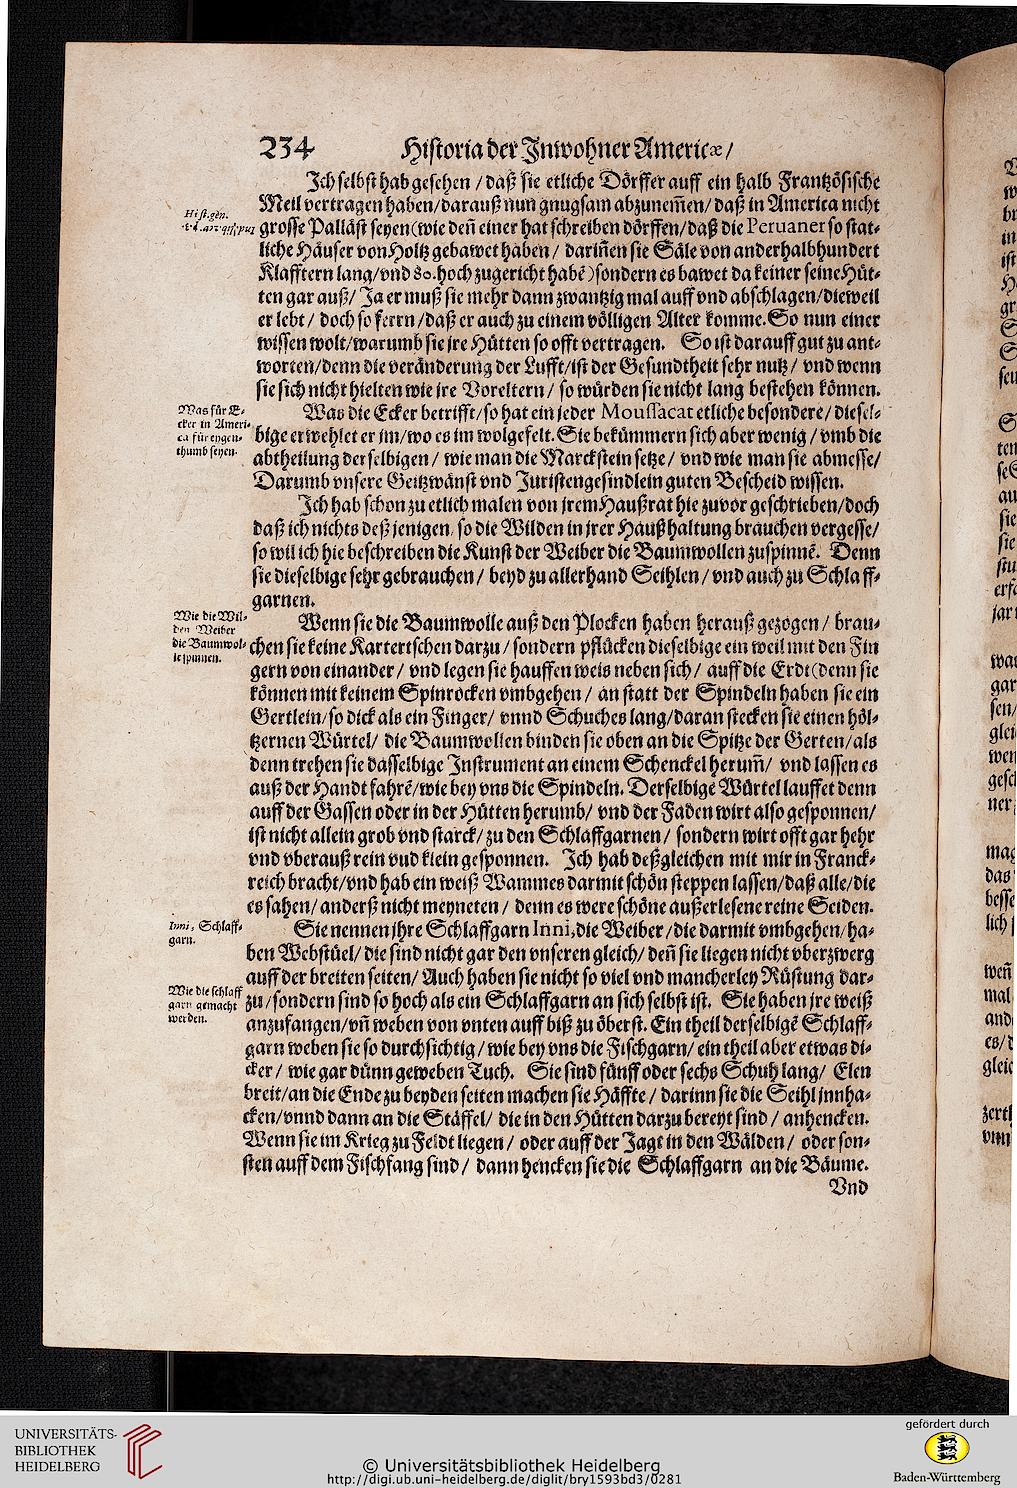 234 Historia der Inwohner Americæ/
Ich selbst hab gesehen / daß sie etliche Dörffer auff ein halb Frantzösische
Meil vertragen haben/darauß nun gnugsam abzunem̃en/ daß in America nicht
Hist. gen.
grosse Palläst seyen (wie deñ einer hat schreiben dörffen/daß die Peruaner so stat-
liche Häuser von Holtz gebawet haben / dariñen sie Säle von anderhalbhundert
Klafftern lang/vnd 80. hoch zugericht habẽ) sondern es bawet da keiner seine Hüt-
ten gar auß/ Ja er muß sie mehr dann zwantzig mal auff vnd abschlagen/dieweil
er lebt / doch so ferrn /daß er auch zu einem völligen Alter komme. So nun einer
wissen wolt/warumb sie jre Hütten so offt vertragen. So ist darauff gut zu ant-
worten/denn die veränderung der Lufft/ist der Gesundtheit sehr nutz / vnd wenn
sie sich nicht hielten wie jre Voreltern / so würden sie nicht lang bestehen können.
Was für E-
cker in Ameri-
ca für eygen-
thumb seyen.
Was die Ecker betrifft/so hat ein jeder Moussacat etliche besondere / diesel-
bige erwehlet er jm/wo es im wolgefelt. Sie bekümmern sich aber wenig / vmb die
abtheilung derselbigen / wie man die Marckstein setze / vnd wie man sie abmesse/
Darumb vnsere Geitzwänst vnd Juristengesindlein guten Bescheid wissen.
Ich hab schon zu etlich malen von jrem Haußrat hie zuvor geschrieben/doch
daß ich nichts deßjenigen, so die Wilden in jrer Haußhaltung brauchen vergesse/
so wil ich hie beschreiben die Kunst der Weiber die Baumwollen zuspinnẽ. Denn
sie dieselbige sehr gebrauchen / beyd zu allerhand Seihlen / vnd auch zu Schlaff-
garnen.
Wie die Wil-
den Weiber
die Baumwol-
le spinnen.
Wenn sie die Baumwolle auß den Plocken haben herauß gezogen / brau-
chen sie keine Kartertschen darzu / sondern pflücken dieselbige ein weil mit den Fin
gern von einander / vnd legen sie hauffen weis neben sich / auff die Erdt (denn sie
können mit keinem Spinrocken vmbgehen / an statt der Spindeln haben sie ein
Gertlein/so dick als ein Finger/ vnnd Schuches lang/daran stecken sie einen höl-
tzernen Würtel/ die Baumwollen binden sie oben an die Spitze der Gerten/als
denn trehen sie dasselbige Instrument an einem Schenckel herum̃/ vnd lassen es
auß der Handt fahrẽ/wie bey vns die Spindeln. Derselbige Würtel lauffet denn
auff der Gassen oder in der Hütten herumb/ vnd der Faden wirt also gesponnen/
ist nicht allein grob vnd starck/ zu den Schlaffgarnen / sondern wirt offt gar hehr
vnd vberauß rein vnd klein gesponnen. Ich hab deßgleichen mit mir in Franck-
reich bracht/vnd hab ein weiß Wammes darmit schön steppen lassen/daß alle/die
es sahen/ anderß nicht meyneten / denn es were schöne außerlesene reine Seiden.
Inni, Schlaff-
garn.
Sie nennen jhre Schlaffgarn Inni, die Weiber / die darmit vmbgehen/ ha-
ben Webstüel/ die sind nicht gar den vnseren gleich/ deñ sie liegen nicht vberzwerg
auff der breiten seiten/ Auch haben sie nicht so viel vnd mancherley Rüstung dar-
Wie die schlaff
garn gemacht
werden.
zu / sondern sind so hoch als ein Schlaffgarn an sich selbst ist. Sie haben jre weiß
anzufangen/vñ weben von vnten auff biß zu öberst. Ein theil derselbigẽ Schlaff-
garn weben sie so durchsichtig / wie bey vns die Fischgarn/ ein theil aber etwas di-
cker / wie gar dünn geweben Tuch. Sie sind fünff oder sechs Schuh lang/ Elen
breit/an die Ende zu beyden seiten machen sie Häffte / darinn sie die Seihl jnnha-
cken/vnnd dann an die Stäffel/ die in den Hütten darzu bereyt sind / anhencken.
Wenn sie im Krieg zu Feldt liegen / oder auff der Jagt in den Wälden / oder son-
sten auff dem Fischfang sind / dann hencken sie die Schlaffgarn an die Bäume.
Vnd
UNIVERSITÄTS-
BIBLIOTHEK
HEIDELBERG
© Universitätsbibliothek Heidelberg
http://digi.ub.uni-heidelberg.de/diglit/bry1593bd3/0281
gefördert durch
Baden-Württemberg